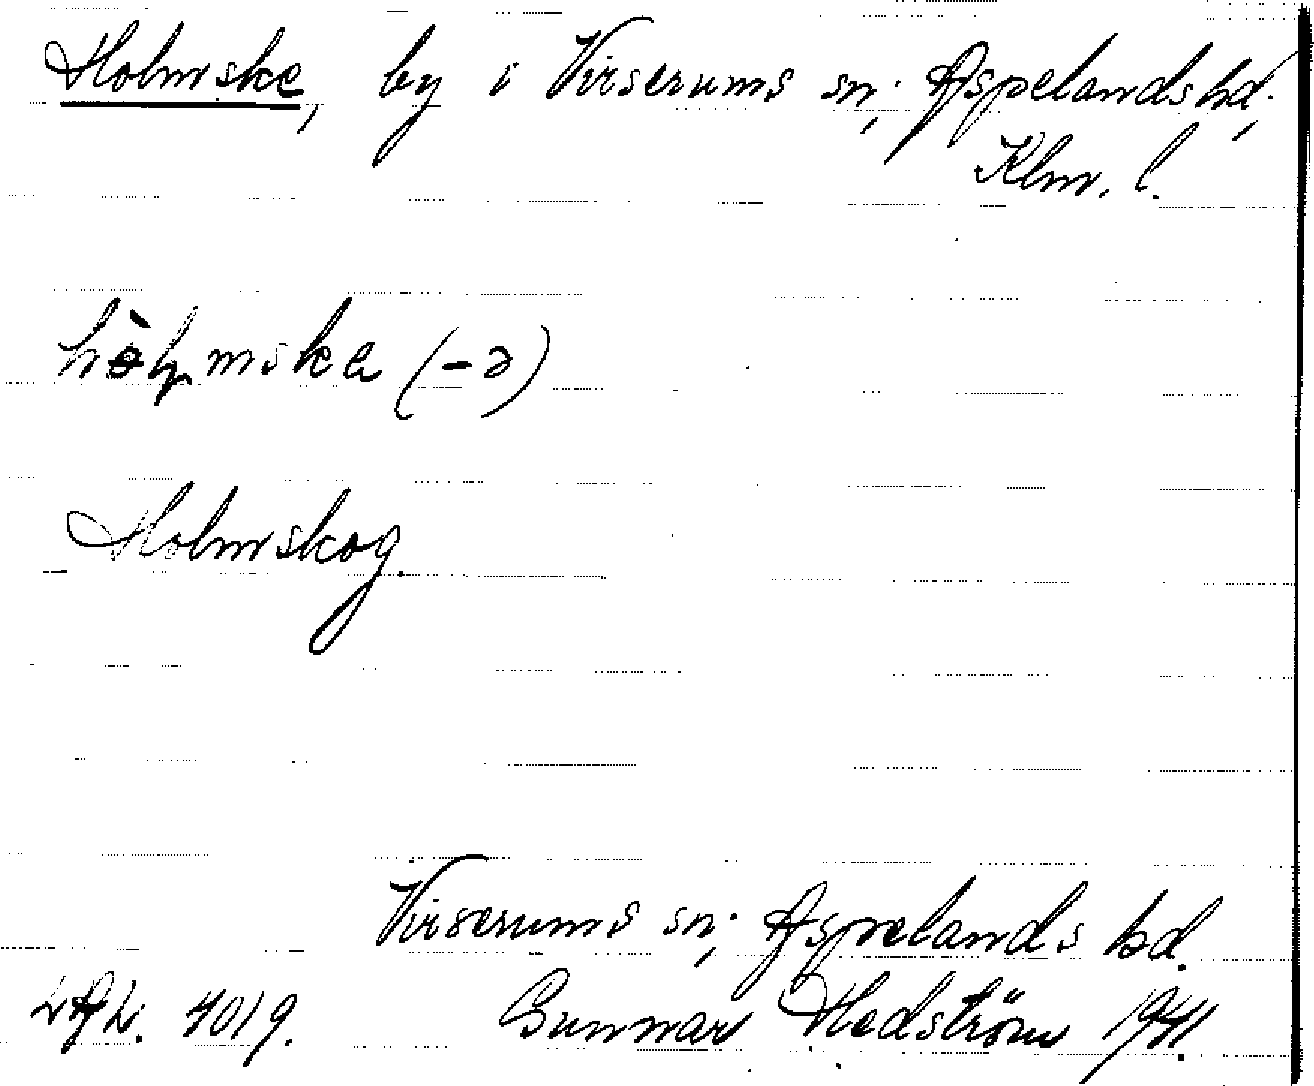 Holmske, by i Virserums sn; Aspelands hd;
Klm. l.
(-ə)
Holmskog.
Virserums sn; Aspelands hd.
4019. Gunnar Hedström 1941.